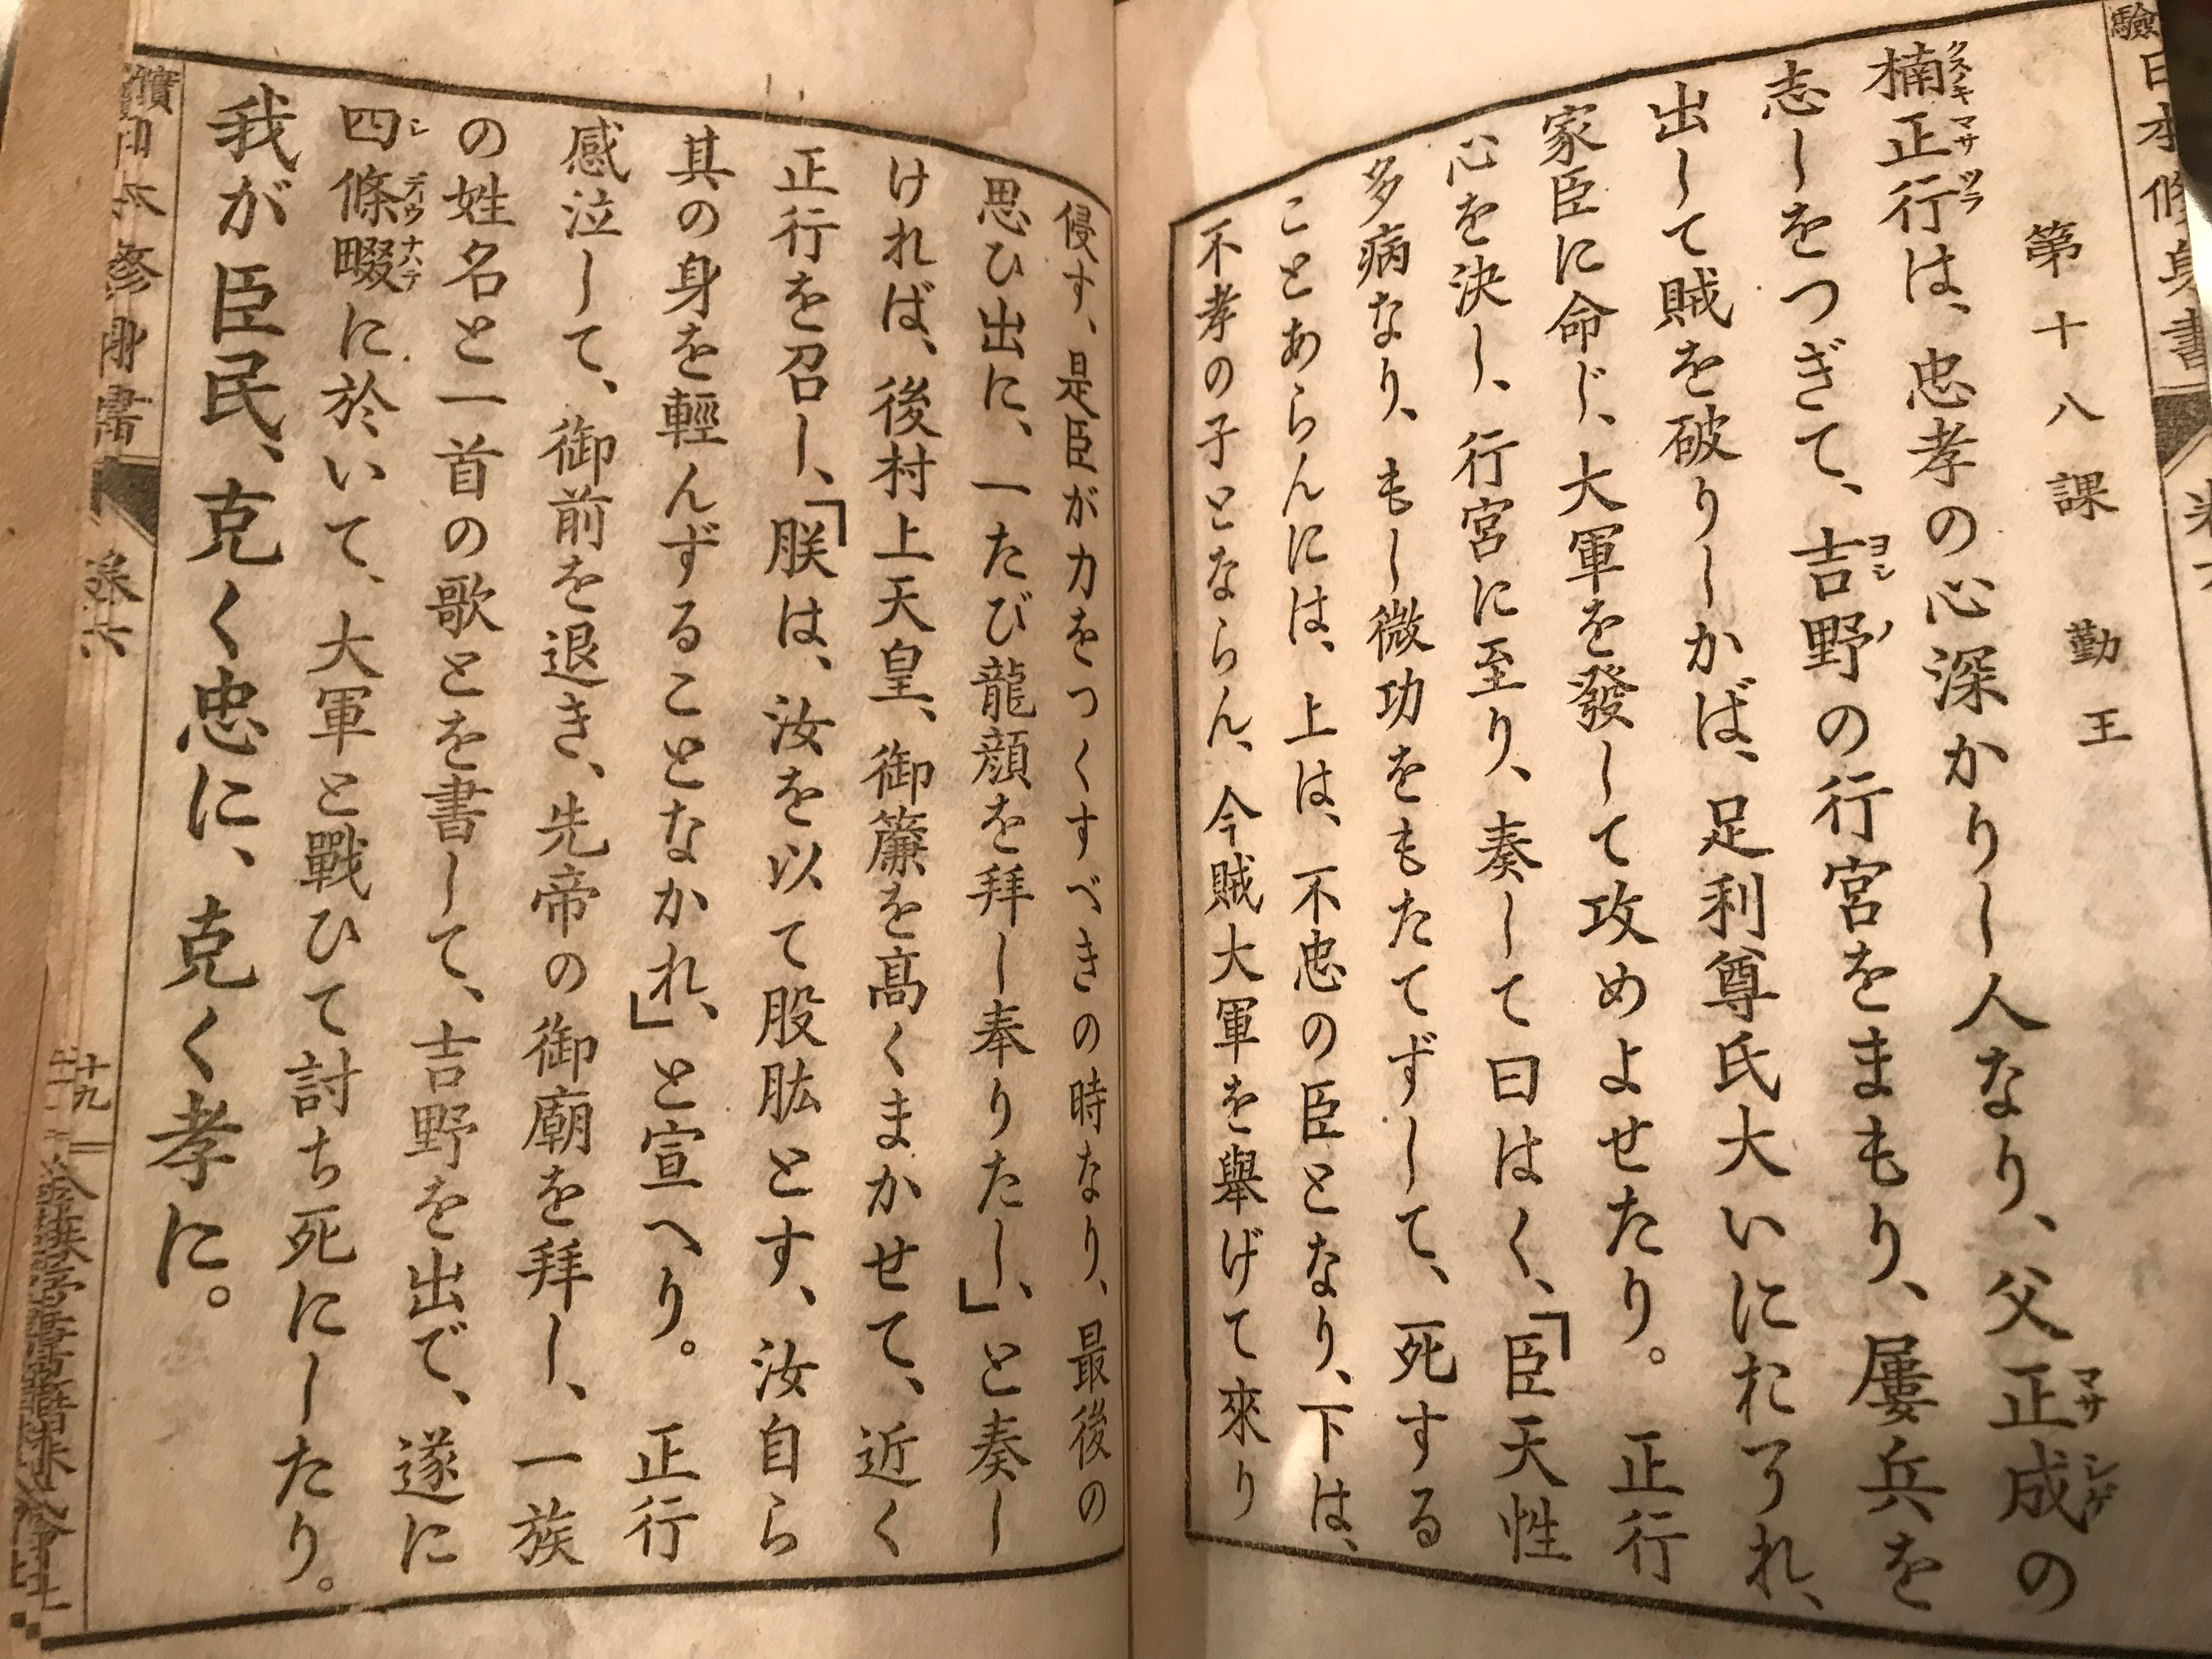 第十八課　勤王
楠正行は、忠孝の心深かりし人なり、父正成の
志しをつぎて、吉野の行宮をまもり、屢兵を
出して賊を破りしかば、足利尊氏大いにおそれ、
家臣に命じ、大軍を發して攻めよせたり。正行
心を決し、行宮に至り、奏して曰はく、「臣天性
多病なり、もし微功をもたてずして、死する
ことあらんには、上は、不忠の臣となり、下は、
不孝の子とならん、今賊大軍を擧げて來り
侵す、是臣が力をつくすべきの時なり、最後の
思ひ出に、一たび龍顔を拜し奉りたし、」と奏し
ければ、後村上天皇、御簾を高くまかせて、近く
正行を召し、「朕は、汝を以て股肱とす、汝自ら
其の身を輕んずることなかれ、」と宣へり。正行
感泣して、御前を退き、先帝の御廟を拜し、一族
の姓名と一首の歌とを書して、吉野を出で、遂に
四條畷に於いて、大軍と戰ひて討ち死にしたり。
我が臣民、克く忠に、克く孝に。
日本修身書
卷六
十九